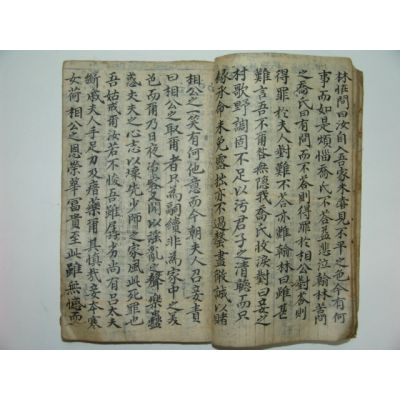 林惟問曰汝自入吾家未嘗見不平之色今有何
事而如是煩惱喬氏不答益悲泣翰林苦問
之喬氏曰有問而不答則得罪於相公對答則
得罪於夫人對難不答亦難翰林曰雖甚
難言吾不爾咎無隱我喬氏收淚對曰妾之
村歌野調固不足以污君子之清聽而只
緣承命未免露拙亦不過罄盡誠以賭
相公之一笑有何他意而今朝夫人召妾責
曰相公之取爾者只為嗣續非為家中之美
色而爾乃日夜之間以亂之聲樂蠱
惑夫夫之心志以壞先少師之家風此死罪也
吾姑戒爾汝若不悛吾雖孱劣尚有呂太夫
斷戚夫人手足刀及瘖藥爾其慎哉妾本寒
女荷相公之恩榮華富貴至此雖無憾而